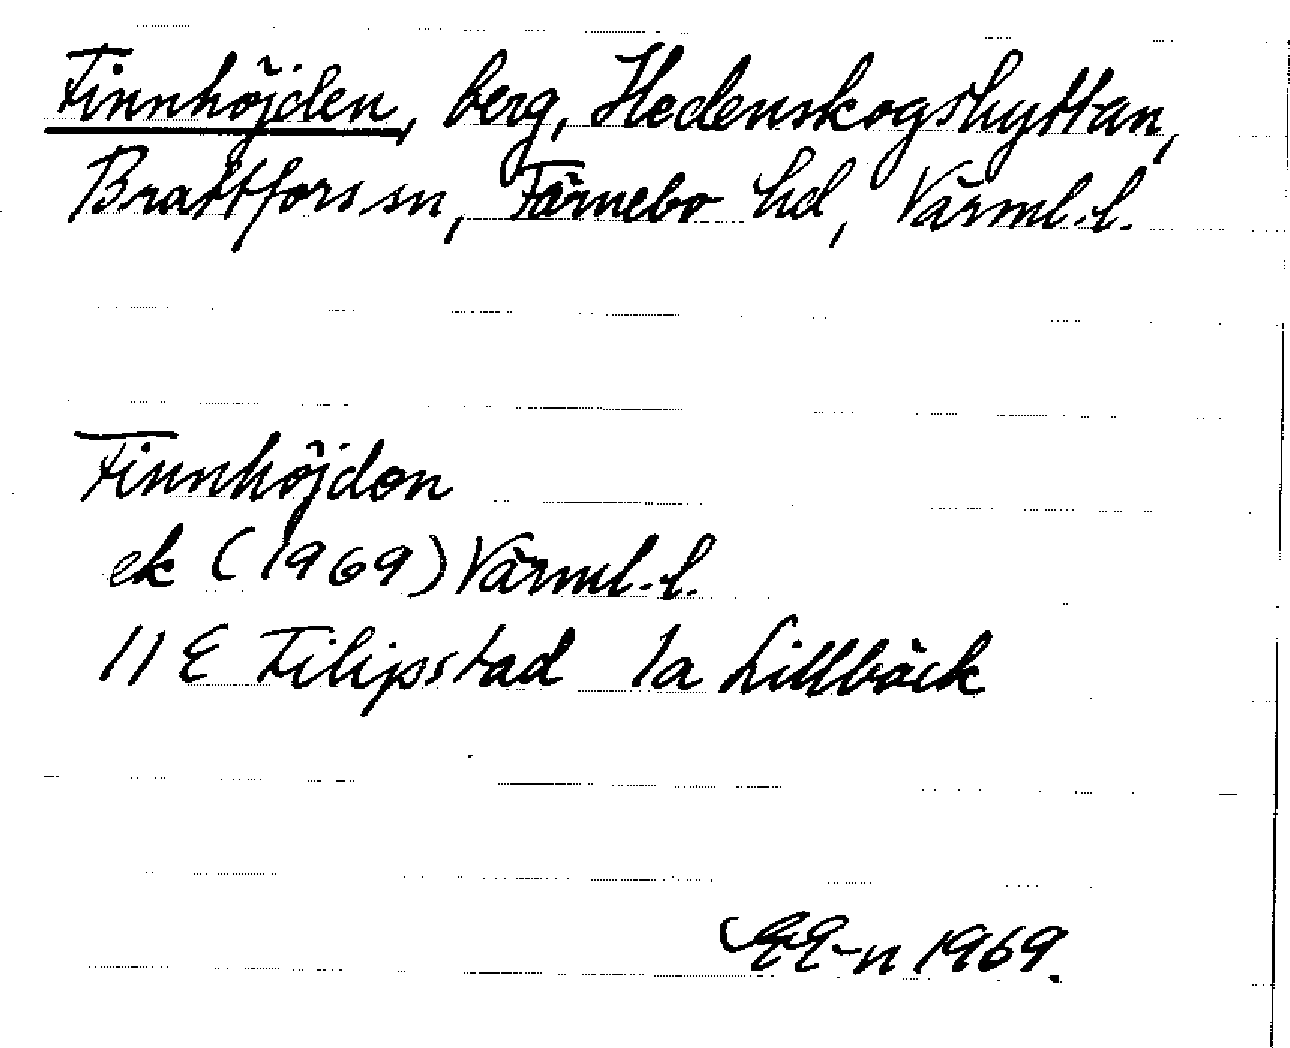 Finnhöjden, berg, Hedenskogshyttan,
Brattfors sn, Färnebo hd, Värml. l.
Finnhöjden
ek (1969) Värml. l.
11 E Filipstad 1a Lillbäck
EE-n 1969.